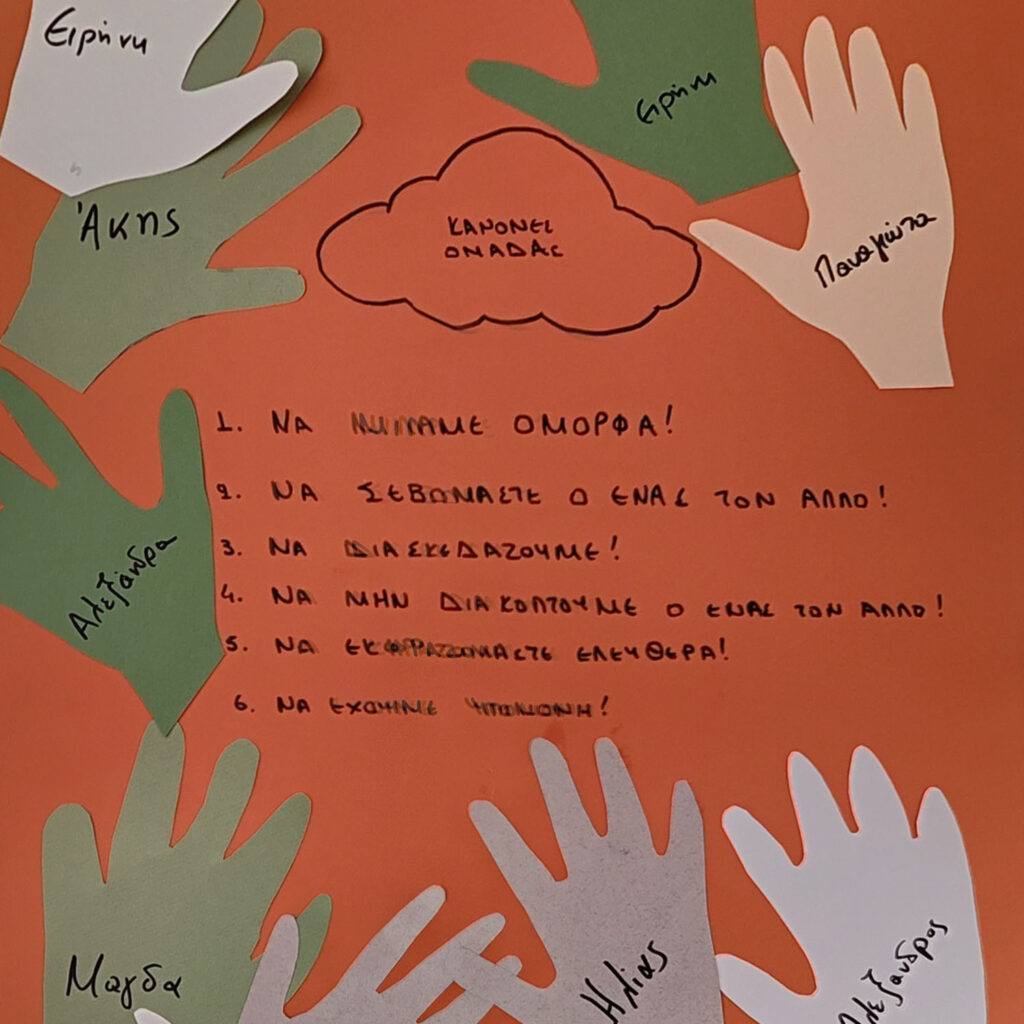 Ειρήνη
Ειρήνη
Άκης
Παναγιώτα
ΚΑΝΟΝΕΣ
ΟΜΑΔΑΣ
1. ΝΑ ΜΙΛΑΜΕ ΟΜΟΡΦΑ!
2. ΝΑ ΣΕΒΟΜΑΣΤΕ Ο ΕΝΑΣ ΤΟΝ ΑΛΛΟ!
3. ΝΑ ΔΙΑΣΚΕΔΑΖΟΥΜΕ!
4. ΝΑ ΜΗΝ ΔΙΑΚΟΠΤΟΥΜΕ Ο ΕΝΑΣ ΤΟΝ ΑΛΛΟ!
5. ΝΑ ΕΚΦΡΑΖΟΜΑΣΤΕ ΕΛΕΥΘΕΡΑ!
6. ΝΑ ΕΧΟΥΜΕ ΥΠΟΜΟΝΗ!
Αλεξάνδρα
Μαγδα
Ηλίας
Αλεξανδρος